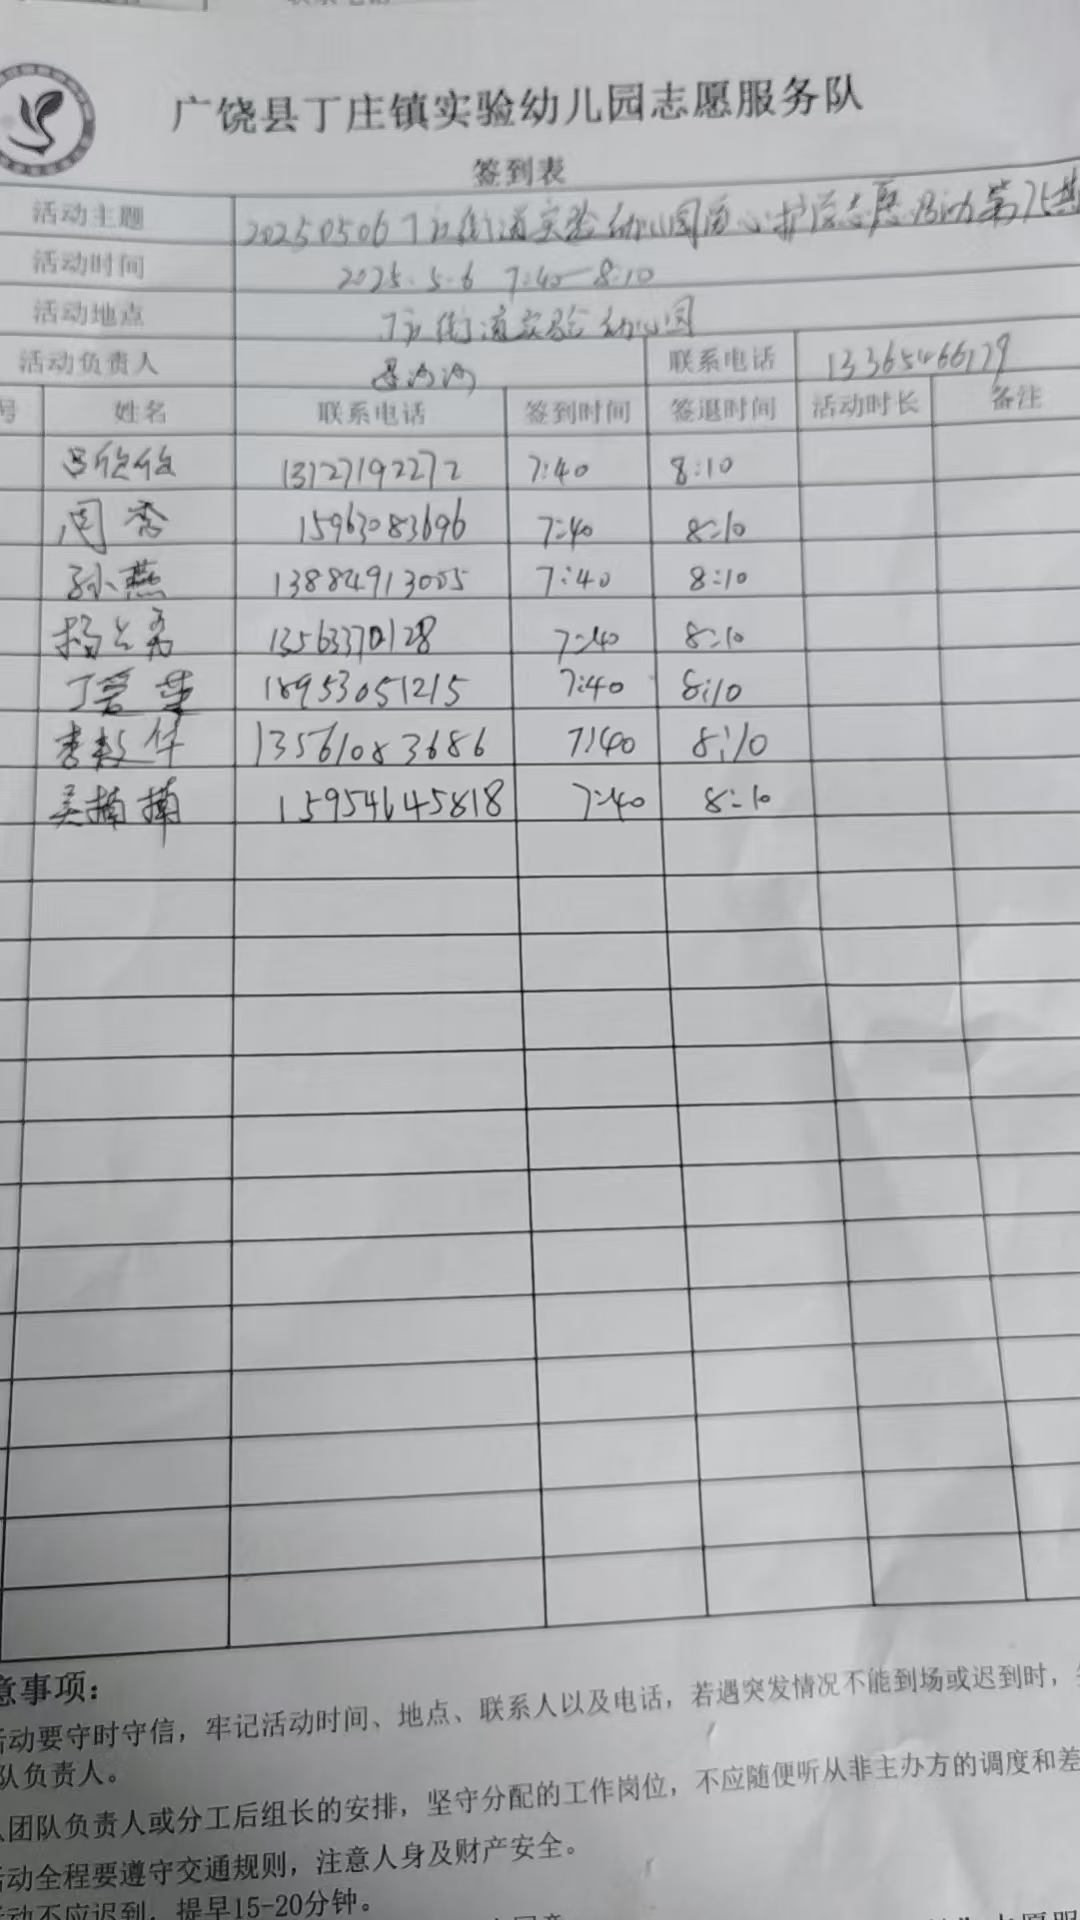 广饶县丁庄镇实验幼儿园志愿服务队
签到表
活动主题 20250506丁庄街道实验幼儿园童心护苗志愿活动第
活动时间 2025.5.6 7:40-8:10
活动地点 丁庄街道实验幼儿园
活动负责人 联系电话 13365466179
号 姓名 联系电话 签到时间 签退时间 活动时长 备注
吕欣欣 13127192272 7:40 8:10
周秀 15963083696 7:40 8:10
孙燕 13884913005 7:40 8:10
13563370128 7:40 8:10
丁爱 18953051215 7:40 8:10
李 华 13561083686 7:40 8:10
吴楠楠 15954645818 7:40 8:10
意事项：
活动要守时守信，牢记活动时间、地点、联系人以及电话，若遇突发情况不能到场或迟到时，
队负责人。
团队负责人或分工后组长的安排，坚守分配的工作岗位，不应随便听从非主办方的调度和差
活动全程要遵守交通规则，注意人身及财产安全。
活动不应迟到，提早15-20分钟。